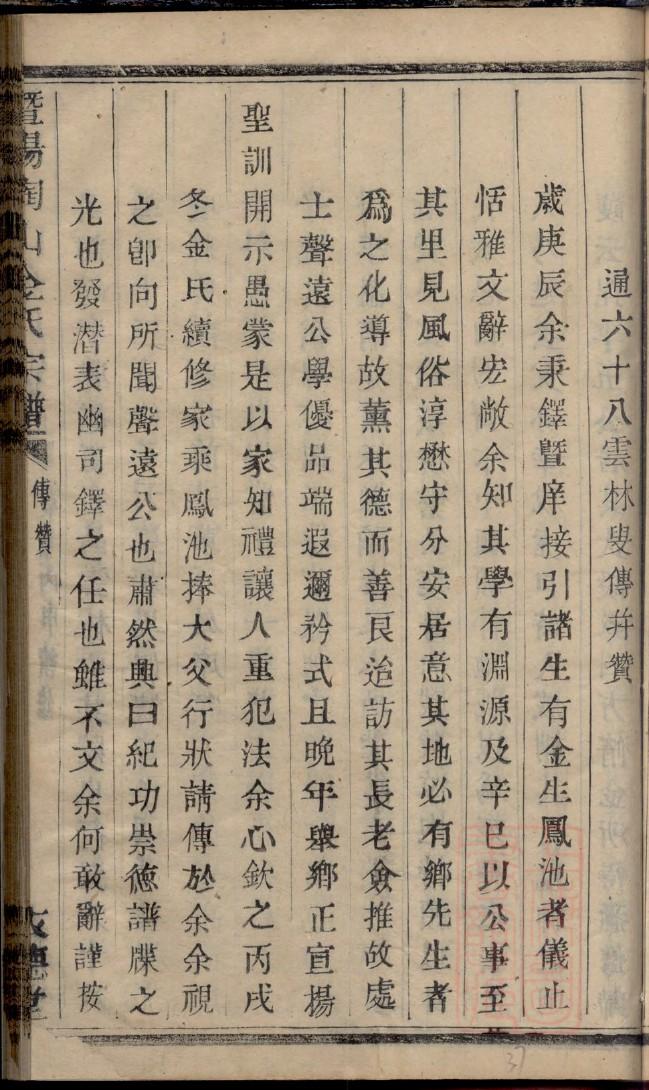 通六十八雲林叟傳并贊
歲庚辰余秉鐸暨庠接引諸生有金生鳳池者儀止
恬雅文辭宏敞余知其學有淵源及辛巳以公事至
其里見風俗淳懋守分安居意其地必有鄉先生者
爲之化導故薰其德而善良迨訪其長老僉推故處
士聲遠公學優品端遐邇矜式且晚年舉鄉正宣揚
聖訓開示愚蒙是以家知禮讓人重犯法余心欽之丙戌
冬金氏續修家乘鳳池捧大父行狀請傳於余余視
之卽向所聞聲遠公也肅然興曰紀功崇德譜牒之
光也發潛表幽司鐸之任也雖不文余何敢辭謹按
暨陽陶山金氏宗譜 傳贊
37